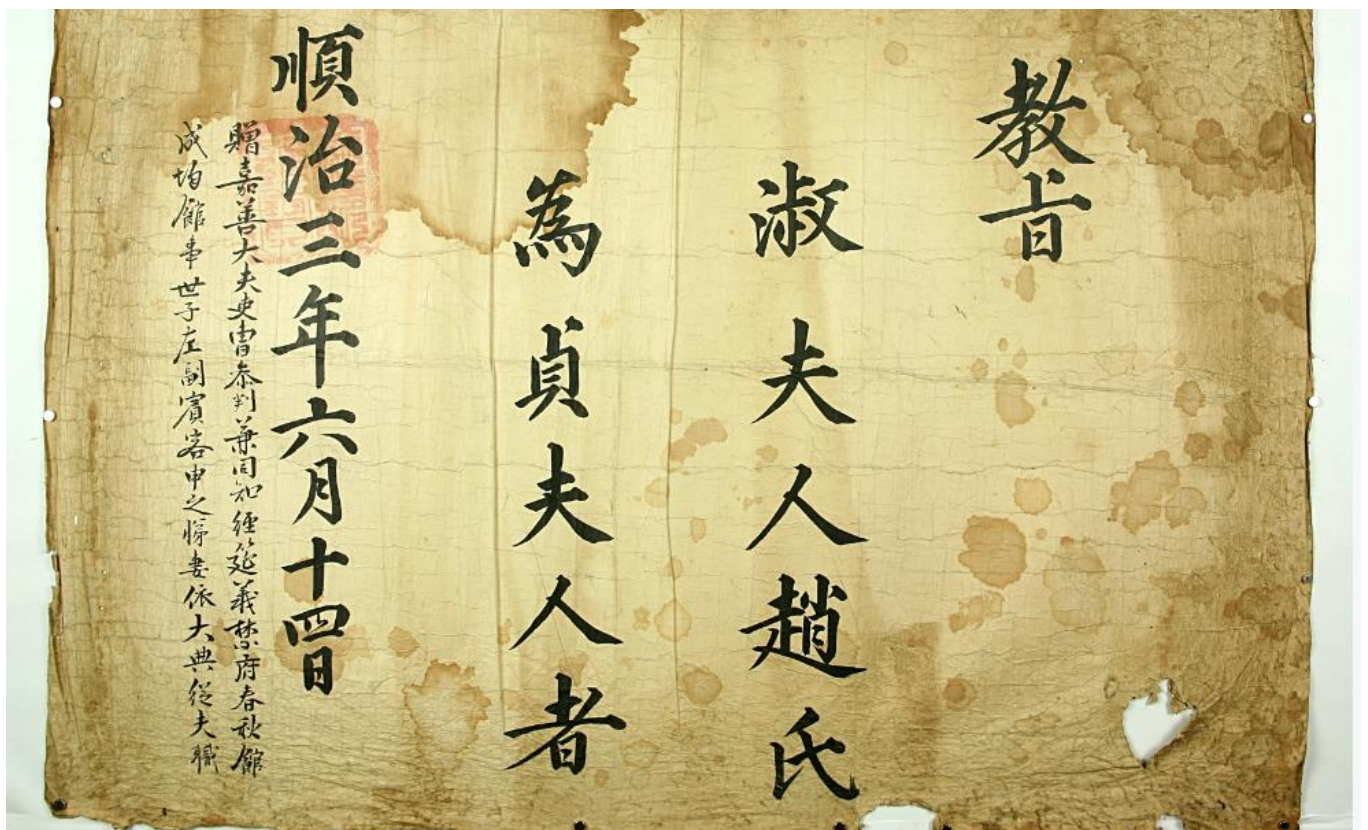 教旨
淑夫人趙氏
為貞夫人者
順治三年六月十四日
贈嘉善大夫吏曹叅判兼同知經筵義禁府春秋館
成均館事世子左副賓客申之悌妻依大典從夫職